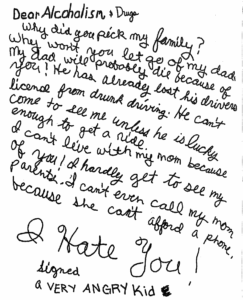 Dear Alcoholism, & Drugs
Why did you pick my family?
Why won't you let go of my dad
My dad will probably die because of
you! He has already lost his drivers
licence from drunk driving. He can't
come to see me unless he is lucky
enough to get a ride.
I can't live with my mom because
of you! I hardly get to see my
parents. I can't even call my mom
because she can't afford a phone.
I Hate You!
signed
a VERY ANGRY Kid